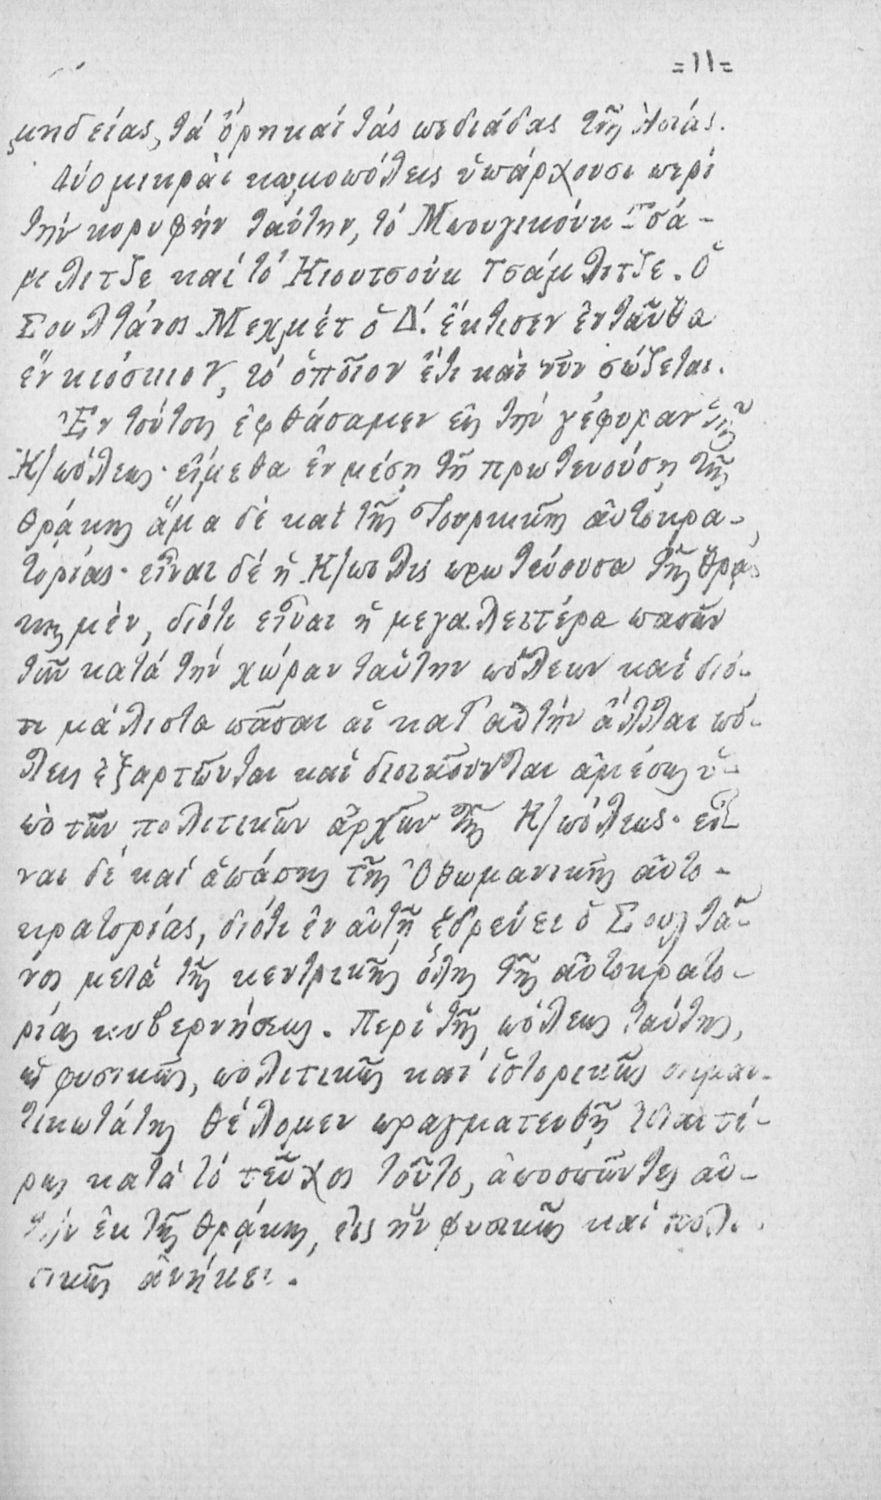 =11=
μηδείας, τά ὄρη καί τάς πεδιάδας τῆς Ἀσίας.
Δύο μικραί κωμοπόλεις ὑπάρχουσι περί
τήν κορυφήν ταύτην, τό Μπουγικούκ Τσά-
μλιτζε καί τό Κιουτσούκ Τσάμλιτζε. Ὁ
Σουλτάνος Μεχμέτ ὁ Δ΄. ἔκτισεν ἐνταῦθα
ἕν κιόσκιον, τό ὁποῖον ἔτι καί νῦν σώζεται.
Ἐν τούτοις ἐφθάσαμεν εἰς τήν γέφυραν τῆς
Κ/πόλεως· εἴμεθα ἐν μέσῃ τῇ πρωτευούσῃ τῆς
Θράκης ἅμα δέ καί τῆς Τουρκικῆς αὐτοκρα-
τορίας· εἶναι δέ ἡ Κ/πολις πρωτεύουσα τῆς Θρά-
κης μέν, διότι εἶναι ἡ μεγαλειτέρα πασῶν
τῶν κατά τήν χώραν ταύτην πόλεων καί διό-
τι μάλιστα πᾶσαι αἱ κατ' αὐτήν ἄλλαι πό-
λεις ἐξαρτῶνται καί διοικοῦνται ἀμέσως ὑ-
πό τῶν πολιτικῶν ἀρχῶν τῆς Κ/πόλεως· εἶ-
ναι δέ καί ἁπάσης τῆς Ὀθωμανικῆς αὐτο-
κρατορίας, διότι ἐν αὐτῇ ἑδρεύει ὁ Σουλτᾶ-
νος μετά τῆς κεντρικῆς ὅλης τῆς αὐτοκρατο-
ρίας κυβερνήσεως. Περί τῆς πόλεως ταύτης,
ὡς φυσικῶς, πολιτικῶς καί ἱστορικῶς σημαν-
τικωτάτης θέλομεν πραγματευθῆ ἰδιαιτέ-
ρως κατά τό τεῦχος τοῦτο, ἀποσπῶντες αὐ-
τήν ἐκ τῆς Θράκης, εἰς ἥν φυσικῶς καί πολι-
τικῶς ἀνήκει.